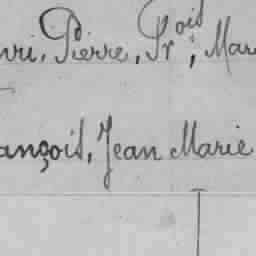 nri, Pierre, Frois, Mar
ançois, Jean Marie